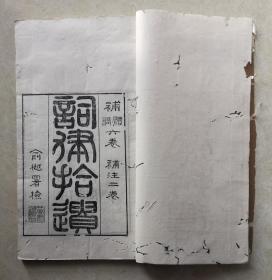 補調體六卷 補注二卷
詞律拾遺
俞樾署檢